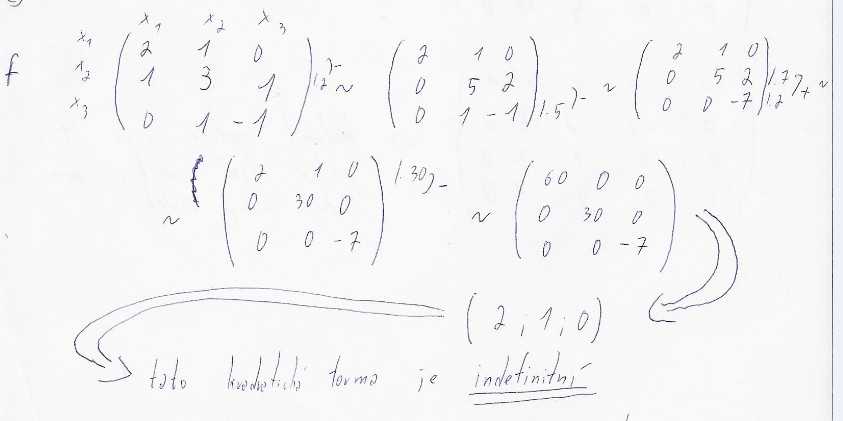 x₁ x₂ x₃
f x₁ x₂ x₃ ( 2 1 0 ; 1 3 1 ; 0 1 -1 ) |·2 )- ~ ( 2 1 0 ; 0 5 2 ; 0 1 -1 ) |·5 )- ~ ( 2 1 0 ; 0 5 2 ; 0 0 -7 ) |·7 |·2 )+ ~
~ ( 2 1 0 ; 0 30 0 ; 0 0 -7 ) |·30 )- ~ ( 60 0 0 ; 0 30 0 ; 0 0 -7 )
( 2 ; 1 ; 0 )
tato kvadratická forma je indefinitní